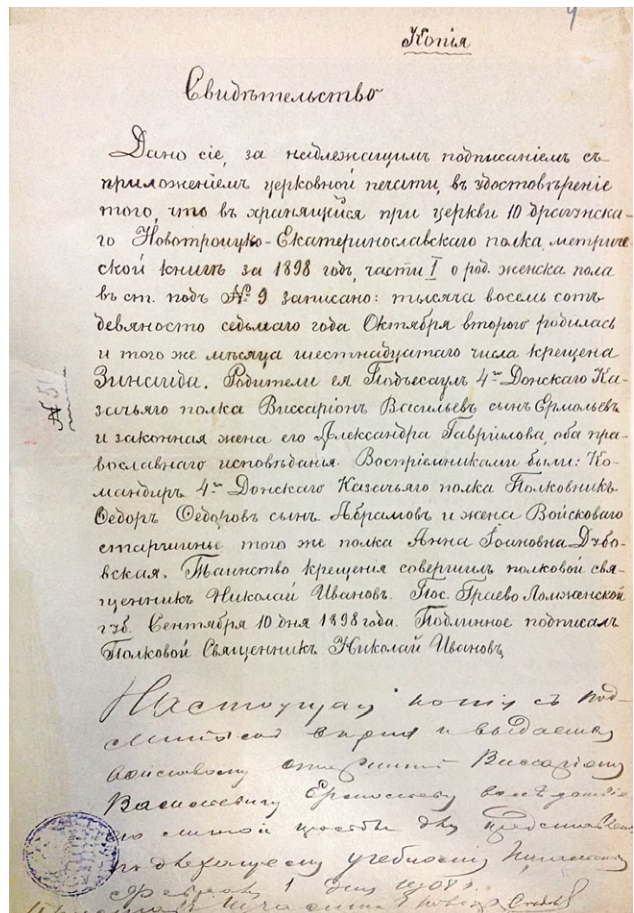 4
Копія
Свидѣтельство
Дано сіе, за надлежащимъ подписаніемъ съ
приложеніемъ церковной печати, въ удостовѣреніе
того, что въ хранящейся при церкви 10 драгунска-
го Новотроицко-Екатеринославскаго полка, метриче-
ской книгѣ за 1898 годъ, части I о род. женска пола
въ ст. подъ № 9 записано: тысяча восемь сотъ
девяносто седьмаго года Октября втораго родилась
и того же мѣсяца шестнадцатаго числа крещена
Зинаида. Родители ея Подъесаулъ 4го Донскаго Ка-
зачьяго полка Виссаріонъ Васильевъ сынъ Ермольевъ
и законная жена его Александра Гавріилова, оба пра-
вославнаго исповѣданія. Воспріемниками были: Ко-
мандиръ 4го Донскаго Казачьяго полка Полковникъ
Ѳедоръ Ѳедоровъ сынъ Абрамовъ и жена Войсковаго
старшины того же полка Анна Іоановна Дубо-
вская. Таинство крещенія совершилъ полковой свя-
щенникъ Николай Ивановъ. Пос. Граево Ломженской
губ. Сентября 10 дня 1898 года. Подлинное подписалъ
Полковой Священникъ Николай Ивановъ
Настоящая копія съ под-
линной вѣрна и выдается
войсковому старшинѣ Виссаріону
Васильевичу Ермольеву
его личной просьбѣ для представленія
учебное
Февраля 1 дня 1908 г.